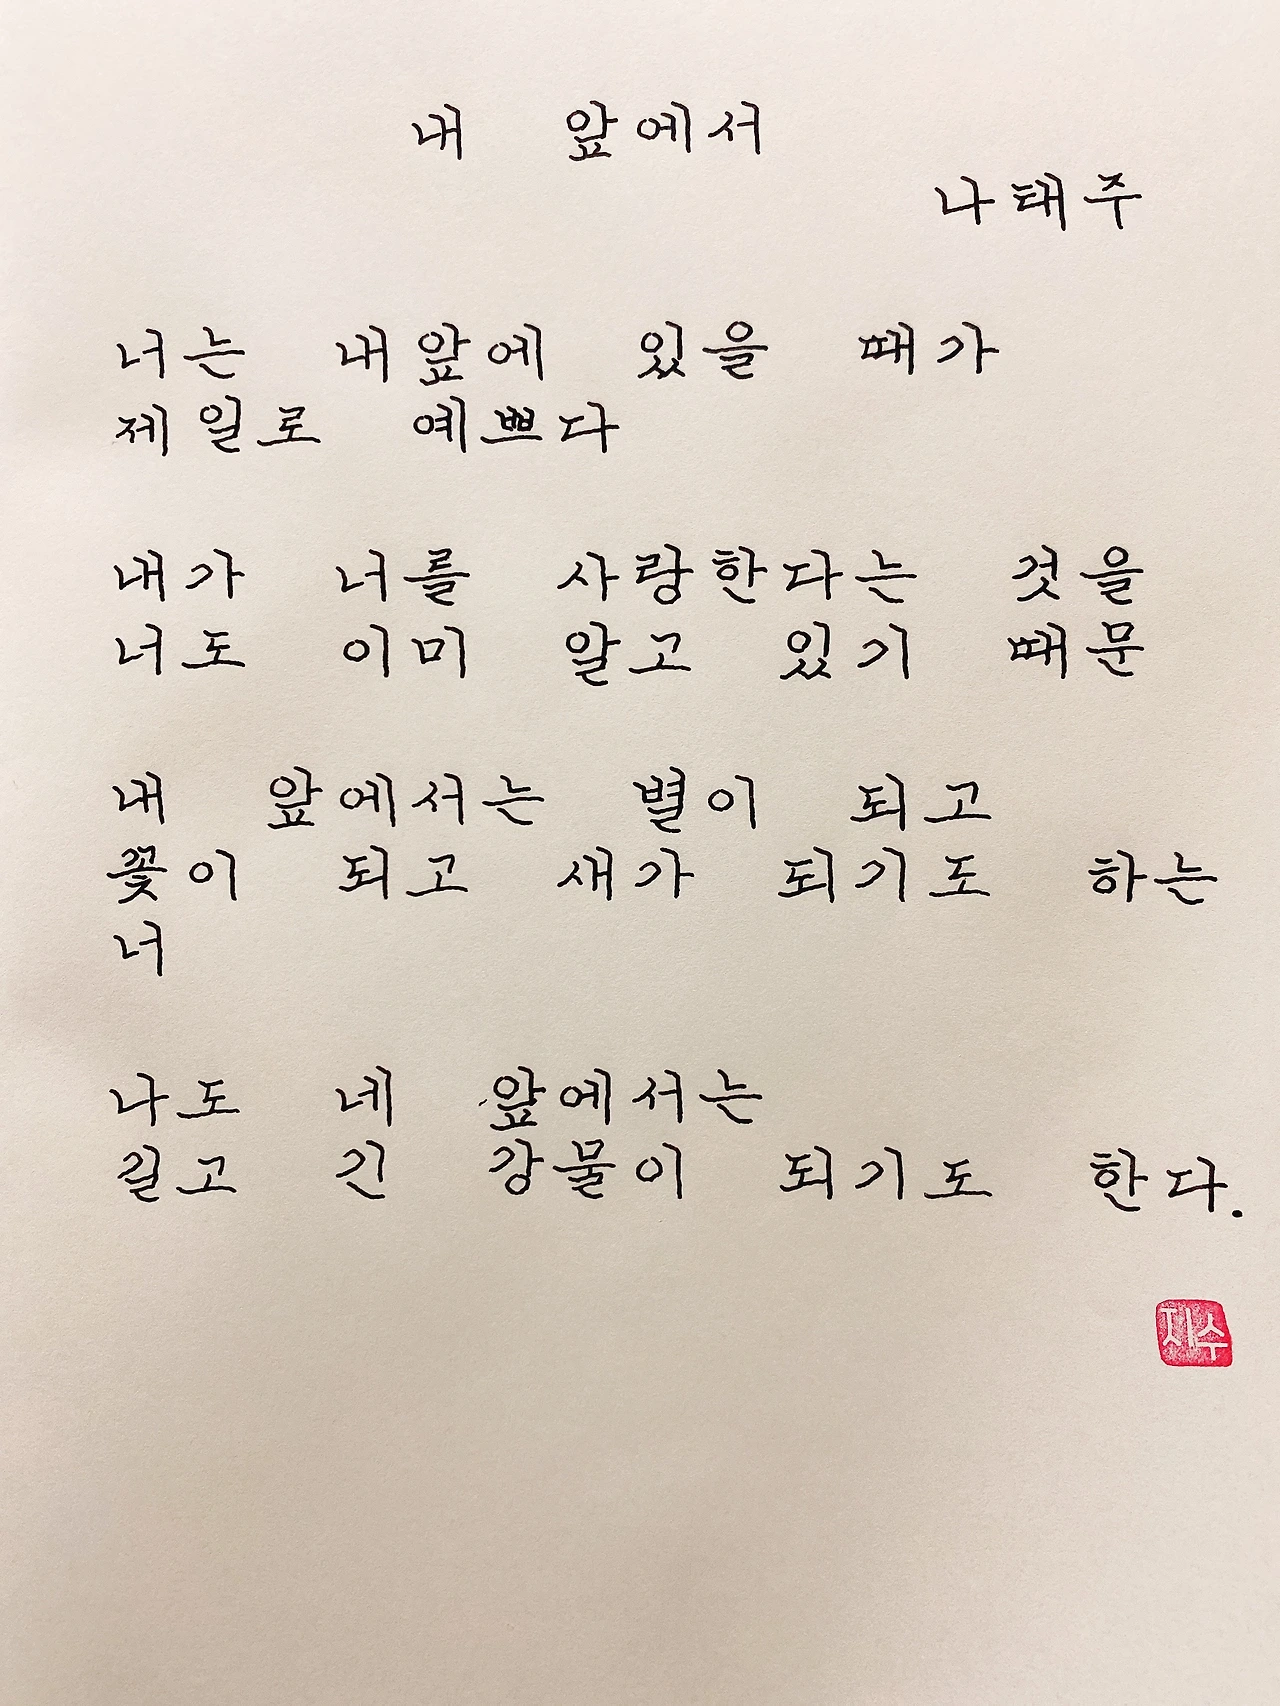 내 앞에서
나태주
너는 내앞에 있을 때가
제일로 예쁘다
내가 너를 사랑한다는 것을
너도 이미 알고 있기 때문
내 앞에서는 별이 되고
꽃이 되고 새가 되기도 하는
너
나도 네 앞에서는
길고 긴 강물이 되기도 한다.
지수